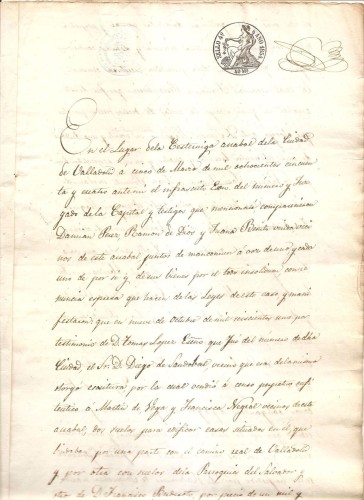 SELLO 4º AÑO 1854
40 MS
En el Lugar de la Cestérniga arrabal de la Ciudad
de Valladolid a cinco de Marzo de mil ochocientos cincuen
ta y cuatro ante mi el infrascrito Esno. del numero y Juz
gado de la Capital y testigos que mencionaré comparecieron
Damian Perez Ramon de Dios y Juana viuda veci
nos de este arrabal juntos de mancomun á voz de uno y cada
uno de por si y de sus bienes por el todo insolidum con re
nuncia espresa que hacen de las Leyes de este caso y mani
festaron: que en nueve de Octubre de mil seiscientos uno por
testimonio de D. Tomas Lopez Esno que fué del numero de dha
Ciudad, el Sr. D. Diego de Sandobal, vecino que era de la misma
otorgó escritura por la cual vendió á censo perpetuo enfi
teutico a Martin de Vega y Francisca vecinos de este
arrabal, dos suelos para edificar casas situados en el, que
lindaban por una parte con el camino real de Valladolid
y por otra con suelos de la Parroquia del Salvador y
otro de D. por precio de un mil y